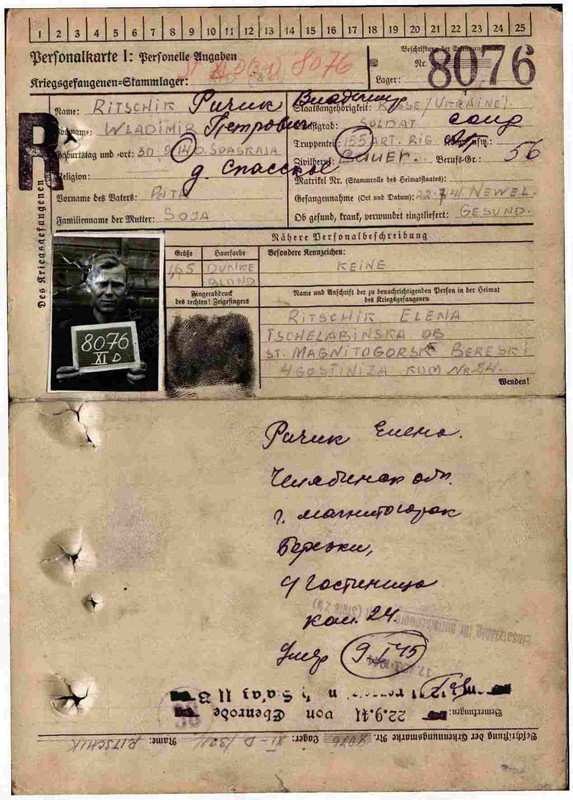 1 2 3 4 5 6 7 8 9 10 11 12 13 14 15 16 17 18 19 20 21 22 23 24 25
Personalkarte I: Personelle Angaben
XI D 8076
Beschriftung der Erkennungsmarke
Nr. 8076
Kriegsgefangenen-Stammlager:
Lager:
R
Des Kriegsgefangenen
Name: RITSCHIK Ричик Владимир
Vorname: WLADIMIR Петрович
Geburtstag und -ort: 30.9.14 D. SPASKAJA
д Спасское
Religion:
Vorname des Vaters:
Familienname der Mutter: SOJA
Staatsangehörigkeit: RUSSE/UKRAINE)
Dienstgrad: SOLDAT солд
Truppenteil: 155 ART. RIG.
Zivilberuf: BAUER. Berufs-Gr.: 56
Matrikel Nr. (Stammrolle des Heimatstaates):
Gefangennahme (Ort und Datum): 22.7.41 NEWEL.
Ob gesund, krank, verwundet eingeliefert: GESUND.
8076
XI D
Nähere Personalbeschreibung
Größe Haarfarbe
1,65 DUNKEL BLOND
Fingerabdruck
des rechten! Zeigefingers
Besondere Kennzeichen:
KEINE
Name und Anschrift der zu benachrichtigenden Person in der Heimat
des Kriegsgefangenen
RITSCHIK ELENA
TSCHELABINSKA OB
ST. MAGNITOGORSK BERESKI
4 GOSTINIZA KOM Nr 24.
Wenden!
Ричик Елена.
Челябинская обл.
г. Магнитогорск
Березки,
4 Гостиница
ком. 24.
Einsatzfähig für
Bemerkungen:
22.9.41 von Ebenrode
Beschriftung der Erkennungsmarke Nr. 8076 Lager: XI-D/321 Name: RITSCHIK